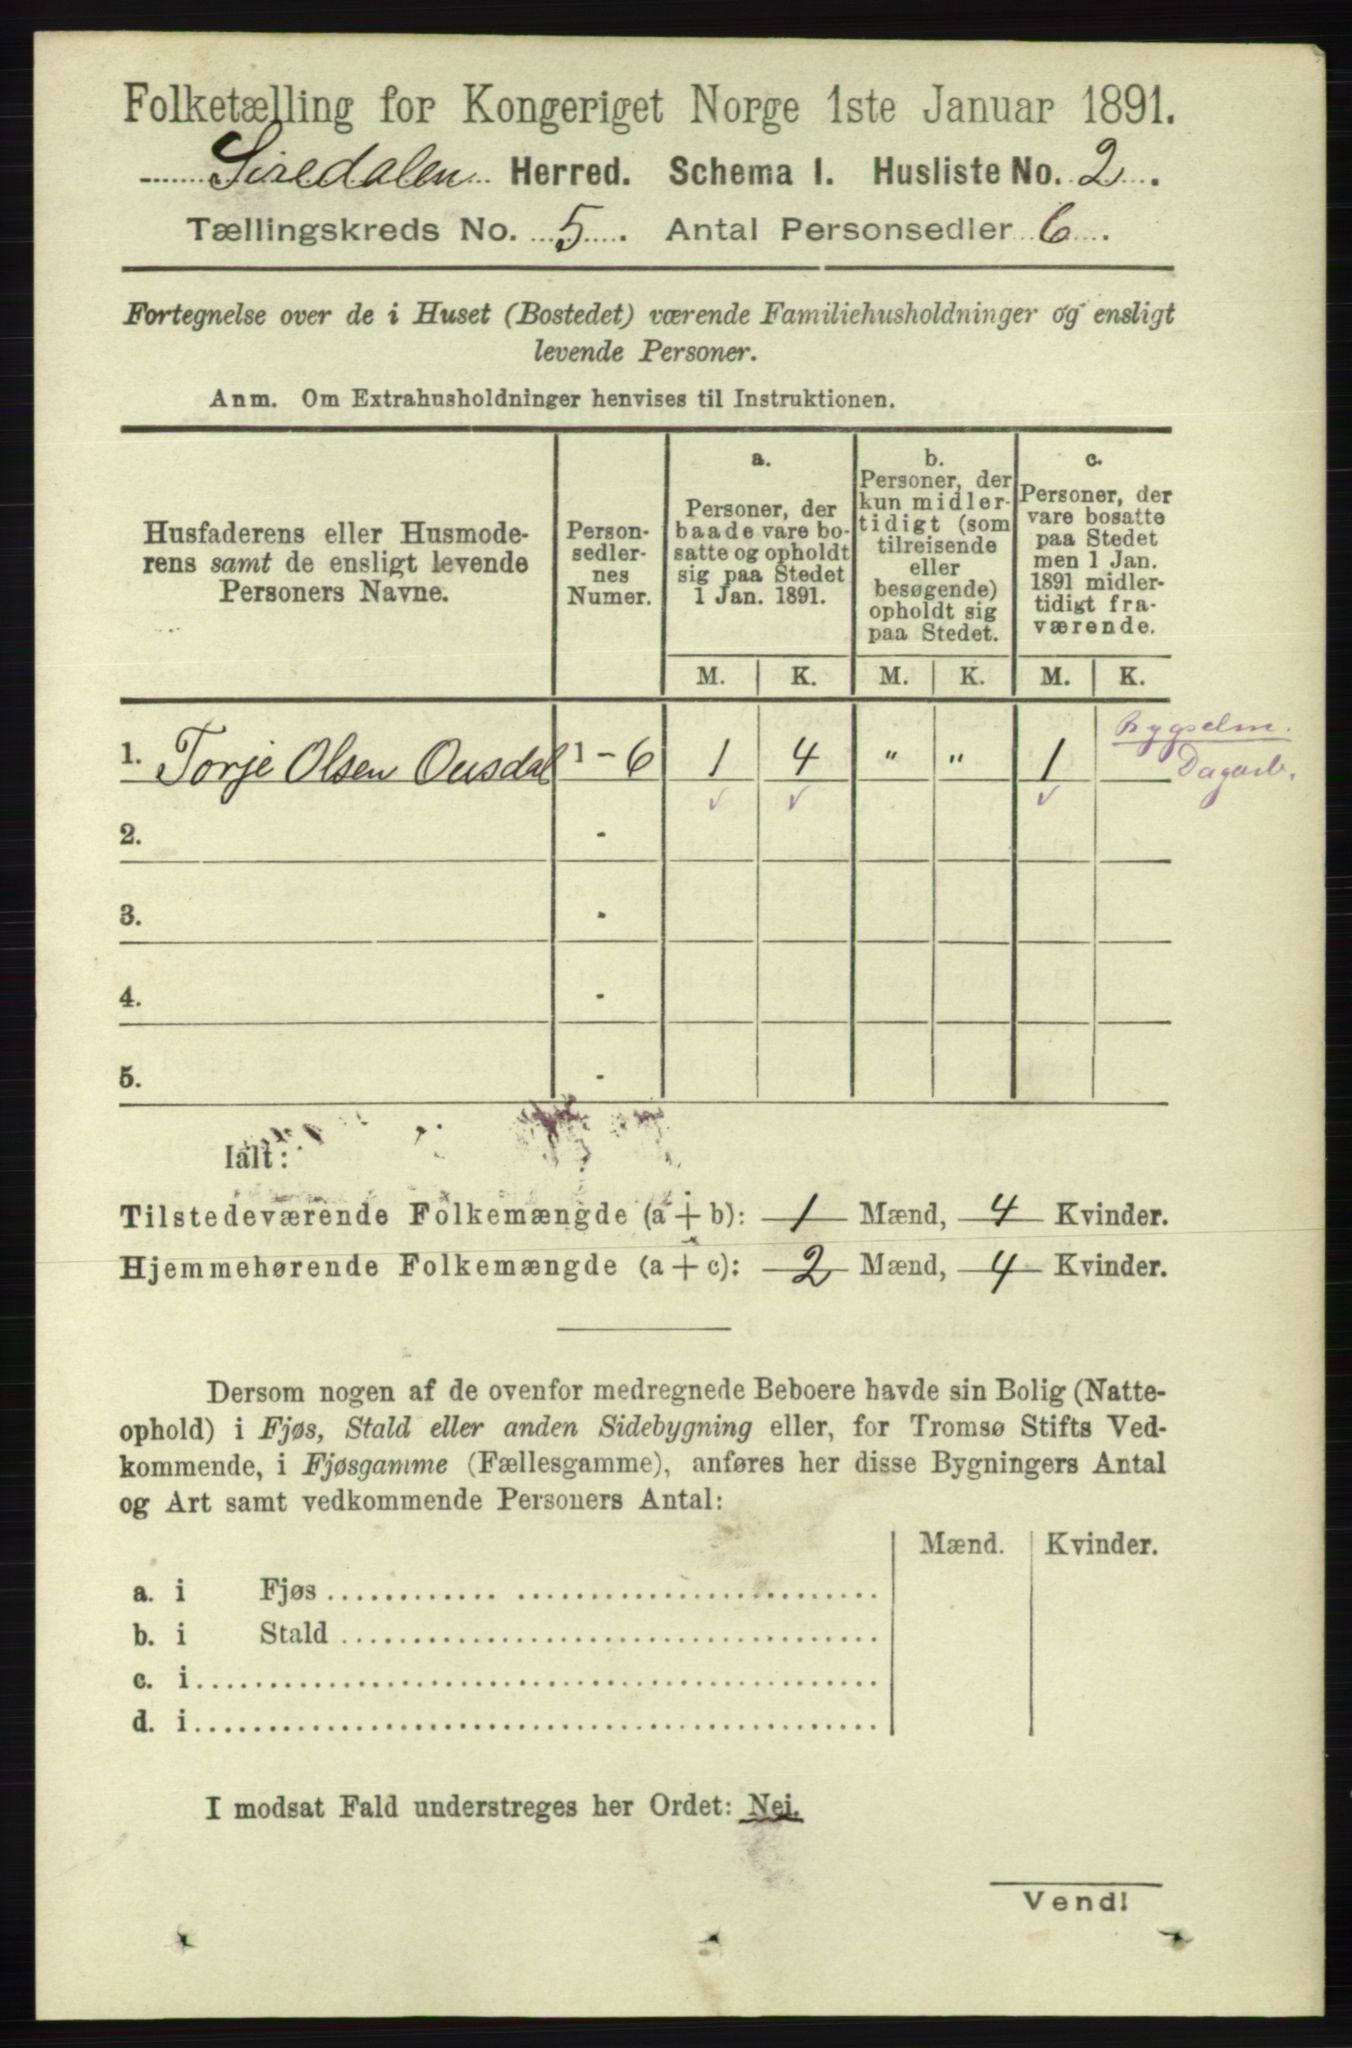 Folketælling for Kongeriget Norge 1ste Januar 1891.
Siredalen Herred. Schema I. Husliste No. 2.
Tællingskreds No. 5. Antal Personsedler 6.
Fortegnelse over de i Huset (Bostedet) værende Familiehusholdninger og ensligt
levende Personer.
Anm. Om Extrahusholdninger henvises til Instruktionen.
Husfaderens eller Husmode-
rens samt de ensligt levende
Personers Navne.
Person-
sedler-
nes
Numer.
a.
Personer, der
baade vare bo-
satte og opholdt
sig paa Stedet
1 Jan. 1891.
b.
Personer, der
kun midler-
tidigt (som
tilreisende
eller
besøgende)
opholdt sig
paa Stedet.
c.
Personer, der
vare bosatte
paa Stedet
men 1 Jan.
1891 midler-
tidigt fra-
værende.
M. K. M. K. M. K.
1. Torje Olsen Ousdal 1 - 6 1 4 " " 1
Bygselm.
Dagarb.
2. -
3. -
4. -
5. -
Ialt:
Tilstedeværende Folkemængde (a + b): 1 Mænd, 4 Kvinder.
Hjemmehørende Folkemængde (a + c): 2 Mænd, 4 Kvinder.
Dersom nogen af de ovenfor medregnede Beboere havde sin Bolig (Natte-
ophold) i Fjøs, Stald eller anden Sidebygning eller, for Tromsø Stifts Ved-
kommende, i Fjøsgamme (Fællesgamme), anføres her disse Bygningers Antal
og Art samt vedkommende Personers Antal:
Mænd. Kvinder.
a. i Fjøs
b. i Stald
c. i
d. i
I modsat Fald understreges her Ordet: Nei.
Vend!